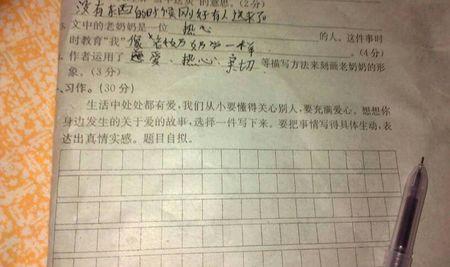 的意思。(2分)
没有东西的时候刚好有人送来了
文中的老奶奶是一位 热心 的人。这件事时
时教育“我” 像老奶奶一样 。(4分)
作者运用了 热心、亲切 等描写方法来刻画老奶奶的形
象。(3分)
习作。(30分)
生活中处处都有爱,我们从小要懂得关心别人,要充满爱心。想想你
身边发生的关于爱的故事,选择一件写下来。要把事情写得具体生动,表
达出真情实感。题目自拟。